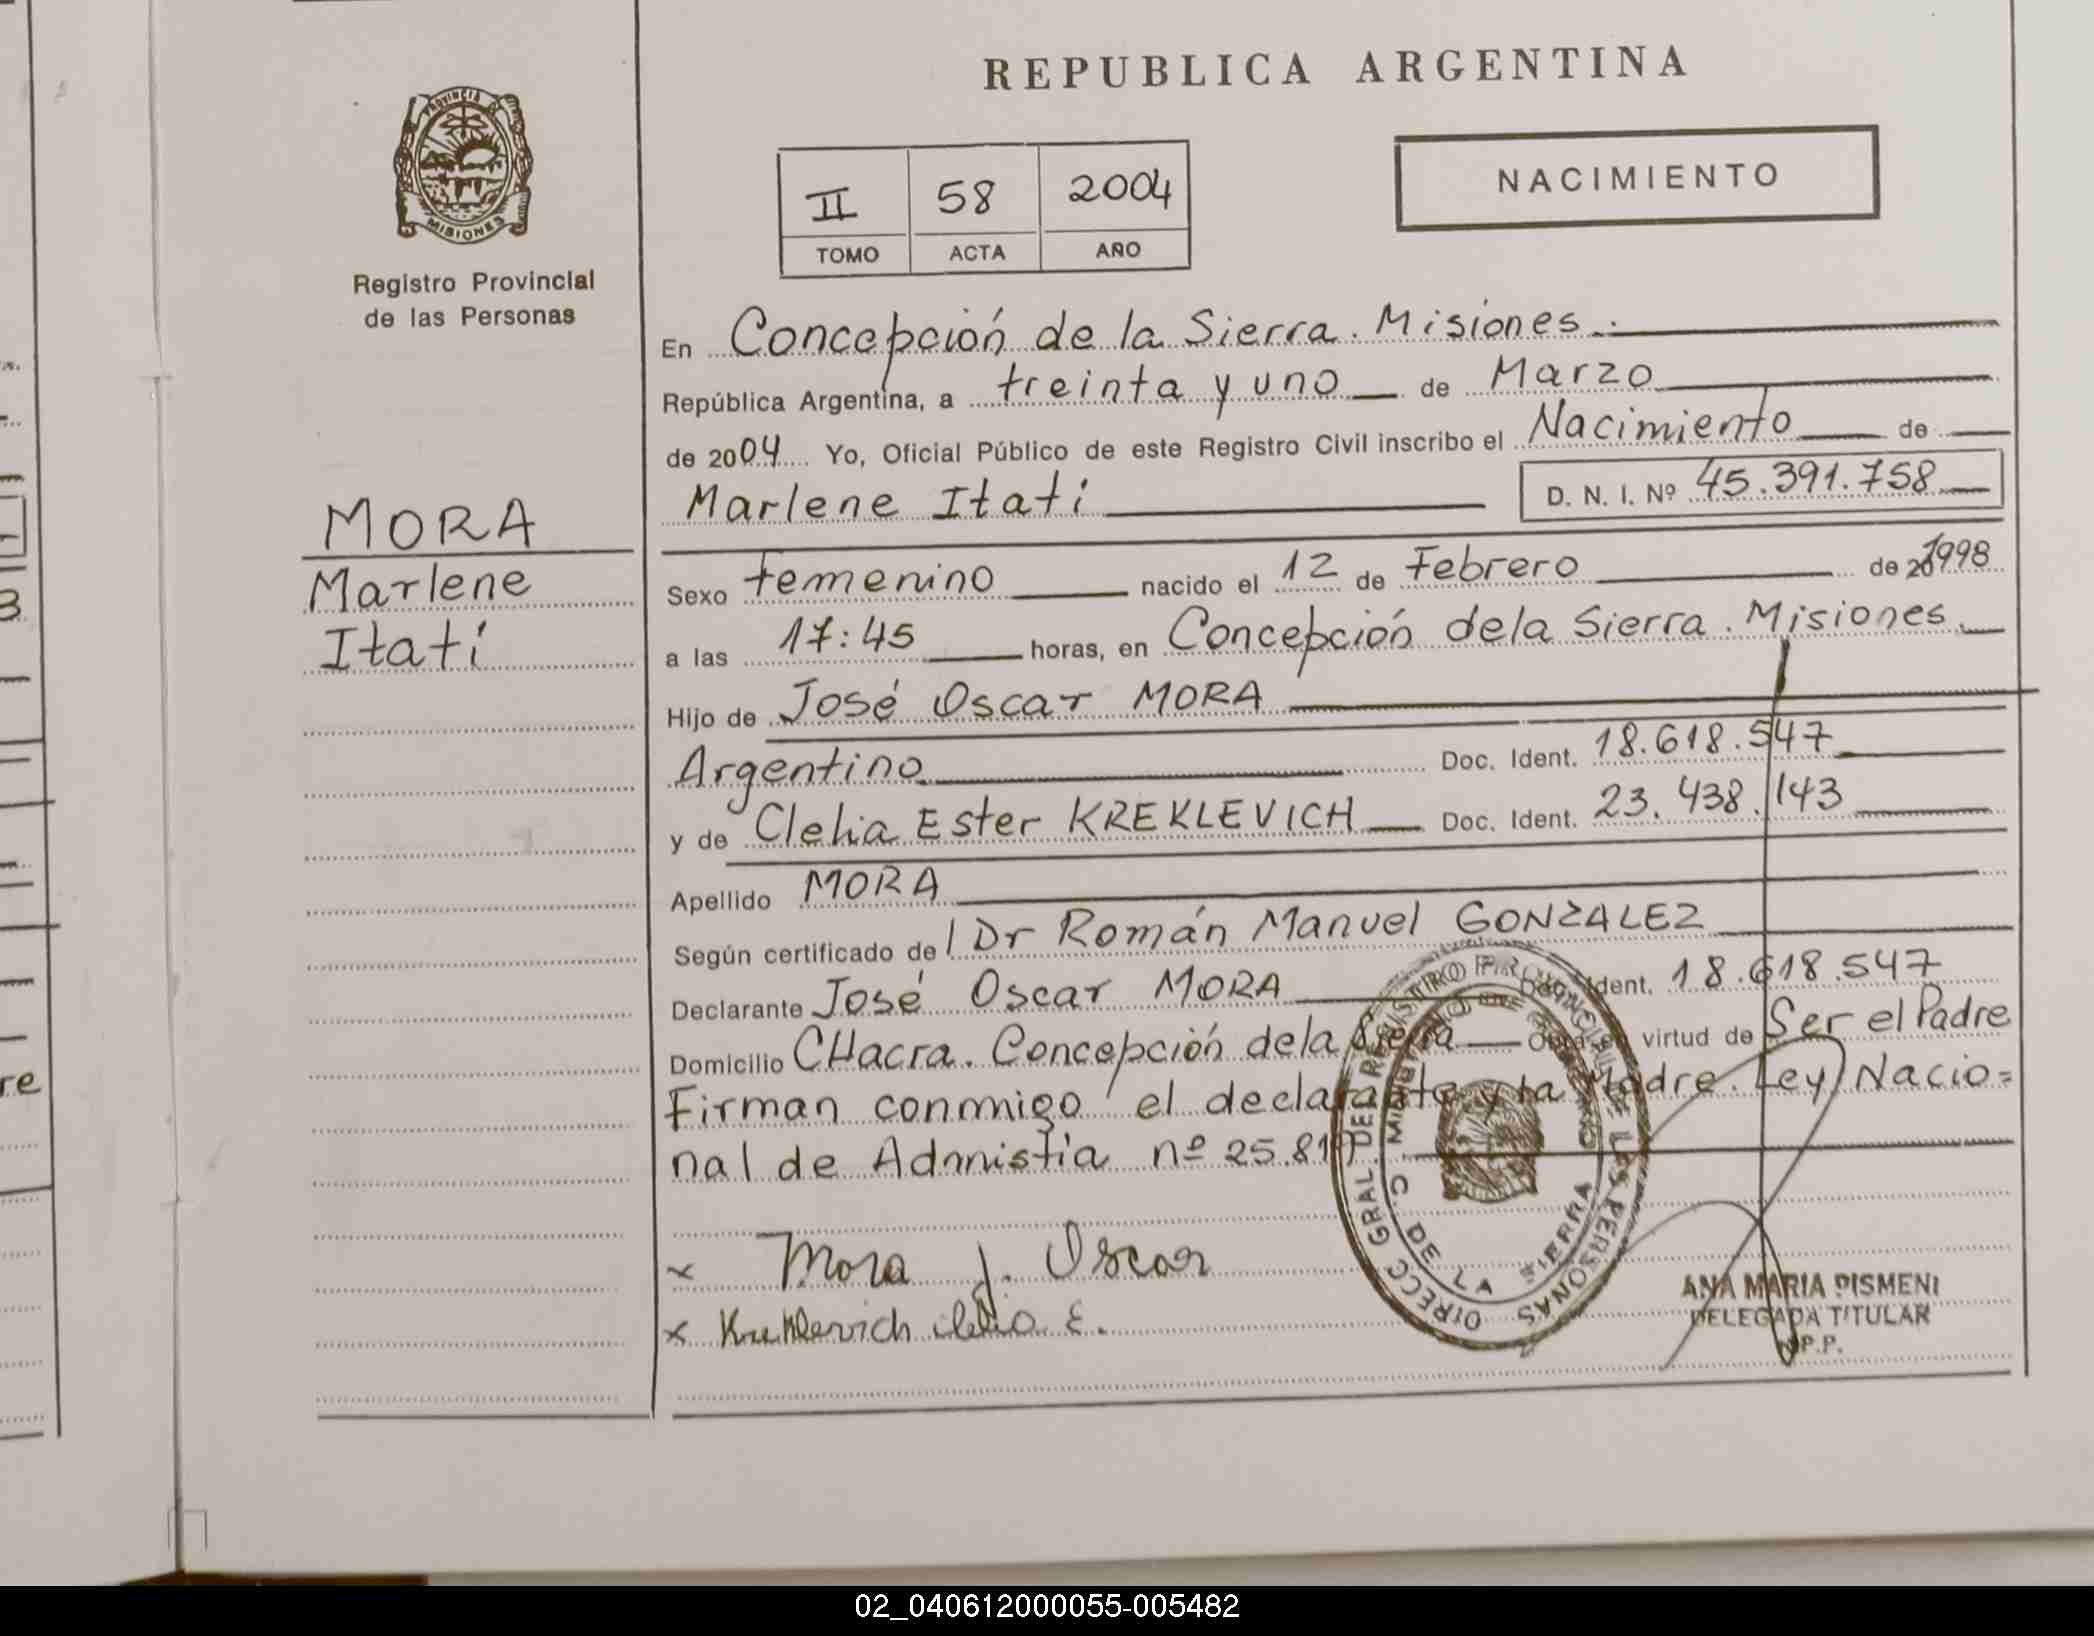 REPUBLICA ARGENTINA
PROVINCIA DE
MISIONES
Registro Provincial
de las Personas
II 58 2004
TOMO ACTA AÑO
NACIMIENTO
MORA
Marlene
Itatí
En Concepción de la Sierra. Misiones.
República Argentina, a treinta y uno de Marzo
de 2004 Yo, Oficial Público de este Registro Civil inscribo el Nacimiento de
Marlene Itatí D. N. I. Nº 45.391.758
Sexo femenino nacido el 12 de Febrero de 20 1998
a las 17:45 horas, en Concepción de la Sierra. Misiones.
Hijo de José Oscar MORA
Argentino Doc. Ident. 18.618.547
y de Clelia Ester KREKLEVICH Doc. Ident. 23.438.143
Apellido MORA
Según certificado del Dr Román Manuel GONZALEZ
Declarante José Oscar MORA Doc. Ident. 18.618.547
Domicilio CHacra. Concepción de la Sierra Obra en virtud de Ser el Padre
Firman conmigo el declarante y la Madre. Ley Nacio=
nal de Admistía nº 25.819
x Mora J. Oscar
x Kreklevich Clelia E.
DIRECC GRAL DEL REGISTRO PROVINCIAL DE LAS PERSONAS
C. DE LA SIERRA
ANA MARIA PISMENI
DELEGADA TITULAR
02_040612000055-005482